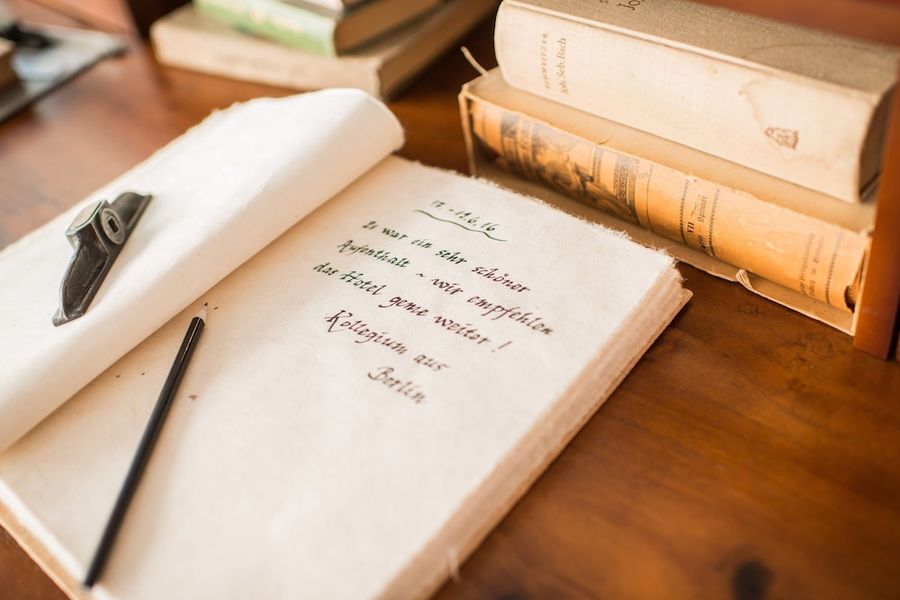 Es war ein sehr schöner
Aufenthalt ~ wir empfehlen
das Hotel gerne weiter!
Kollegium aus
Berlin
SCHWEITZER
Joh. Seb. Bach
Jo
VII